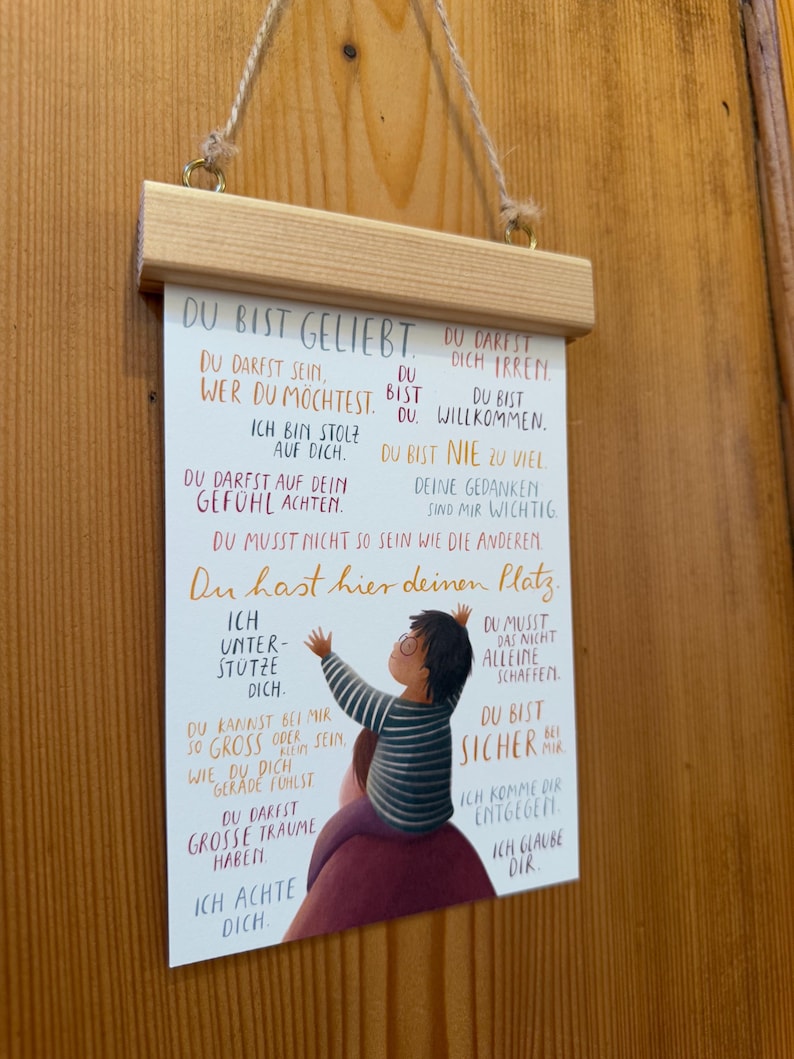 DU BIST GELIEBT.
DU DARFST
DICH IRREN.
DU DARFST SEIN,
WER DU MÖCHTEST.
DU
BIST
DU.
DU BIST
WILLKOMMEN.
ICH BIN STOLZ
AUF DICH.
DU BIST NIE ZU VIEL.
DU DARFST AUF DEIN
GEFÜHL ACHTEN.
DEINE GEDANKEN
SIND MIR WICHTIG.
DU MUSST NICHT SO SEIN WIE DIE ANDEREN.
Du hast hier deinen Platz.
ICH
UNTER-
STÜTZE
DICH.
DU MUSST
DAS NICHT
ALLEINE
SCHAFFEN.
DU KANNST BEI MIR
SO GROSS ODER KLEIN SEIN,
WIE DU DICH
GERADE FÜHLST.
DU BIST
SICHER BEI MIR.
ICH KOMME DIR
ENTGEGEN.
DU DARFST
GROSSE TRÄUME
HABEN.
ICH GLAUBE
DIR.
ICH ACHTE
DICH.